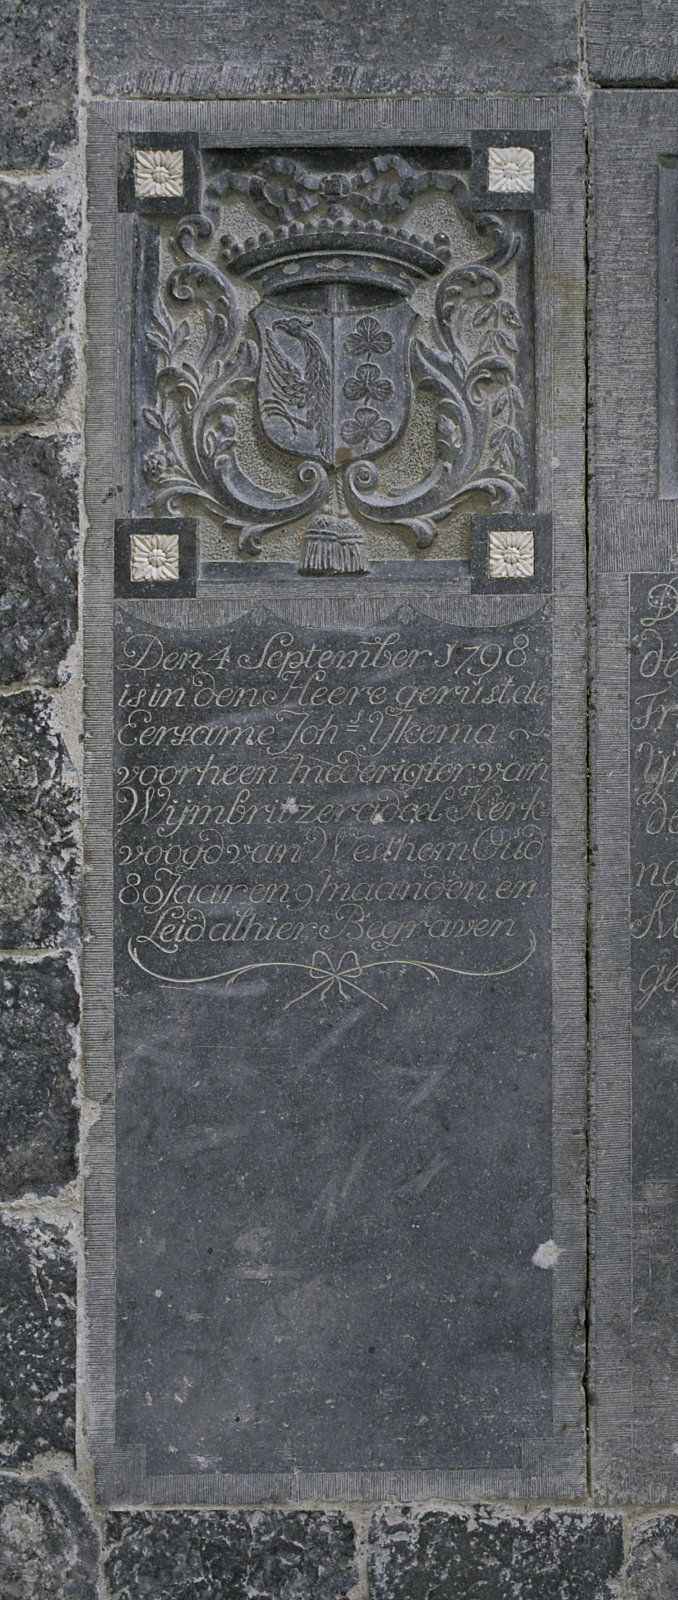 Den 4 September 1798
is in den Heere gerust de
Eersame Joh=s Ykema ~
voorheen mederigter van
Wijmbritzeradeel Kerk-
voogd van Westhem Oud
80 Jaar en 9 maanden en
Leid alhier Begraven